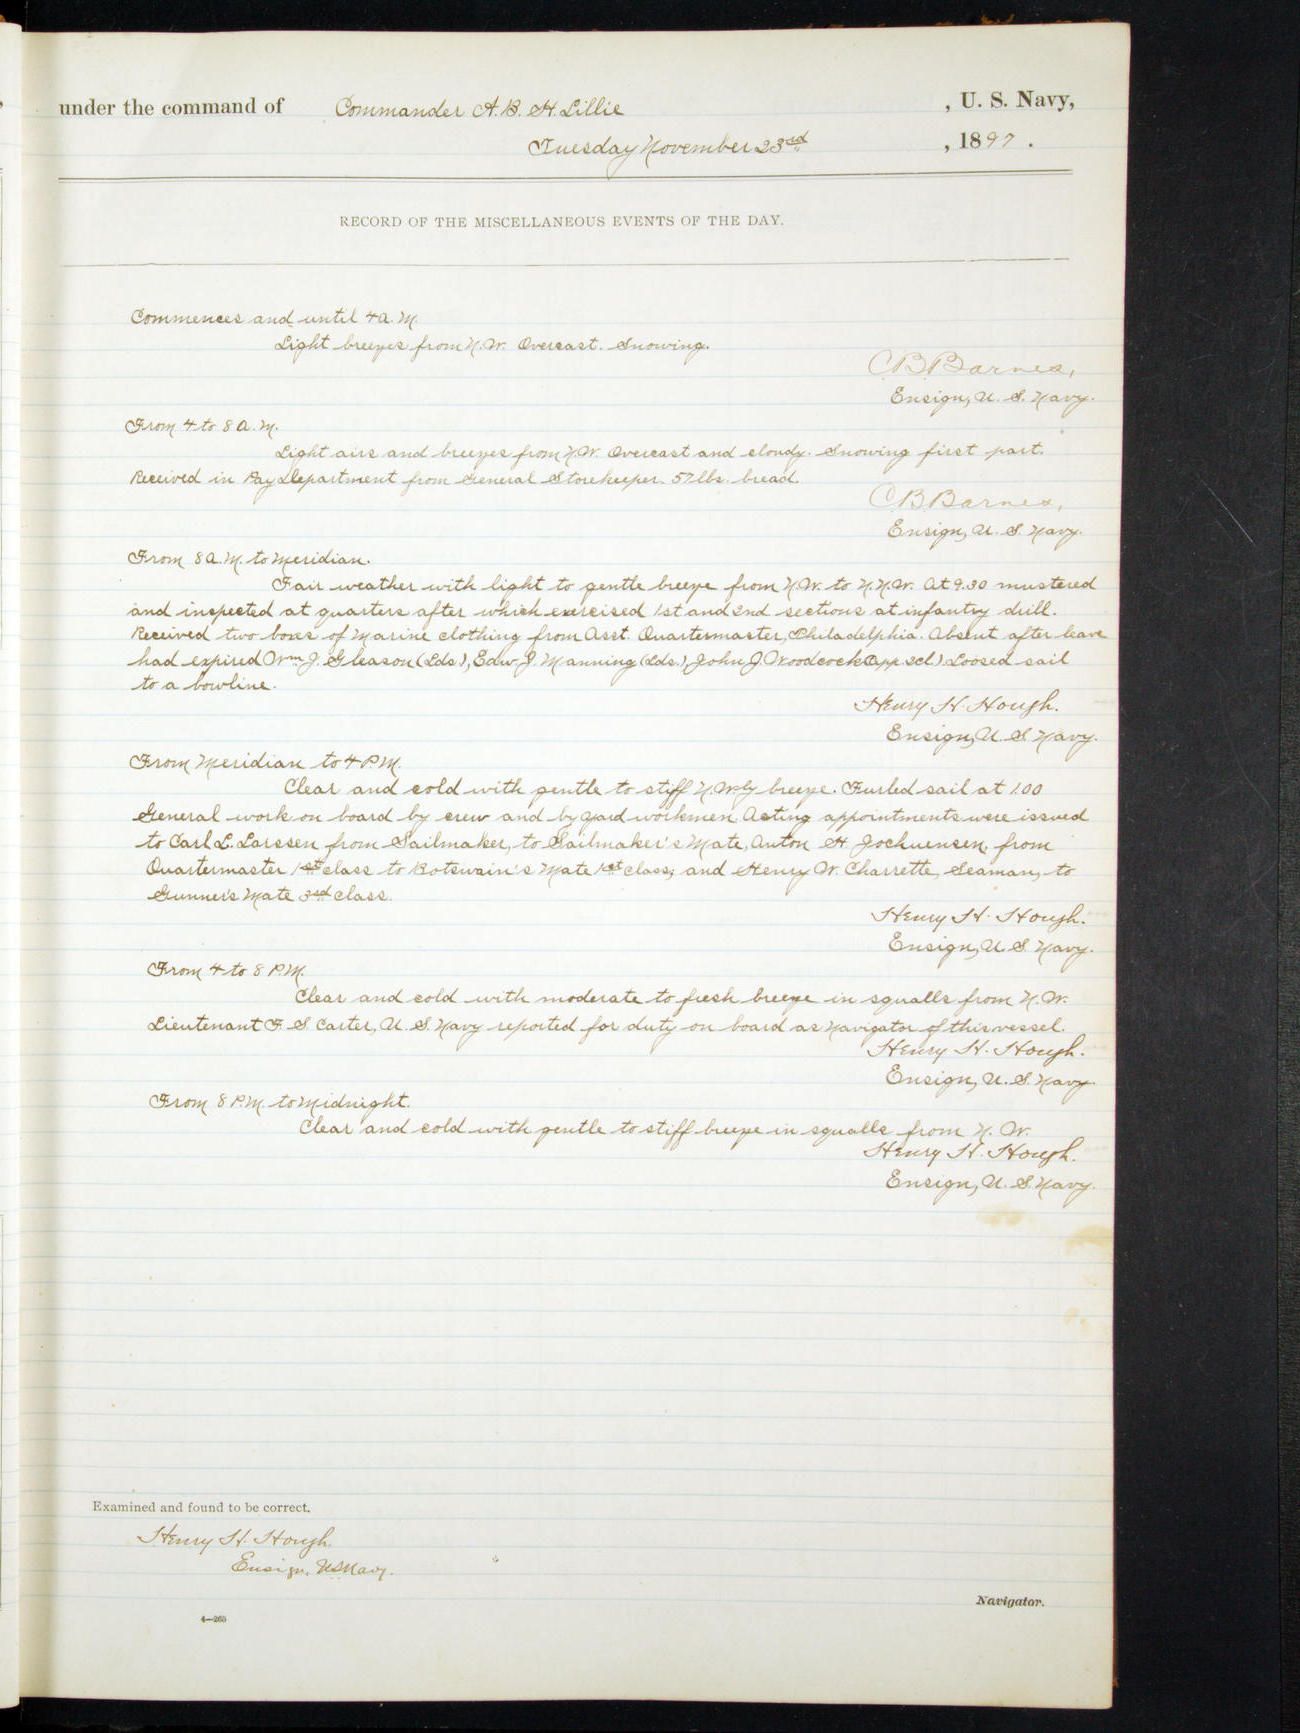 under the command of Commander A. B. H. Lillie , U. S. Navy,
Tuesday November 23rd , 1897 .
RECORD OF THE MISCELLANEOUS EVENTS OF THE DAY.
Commences and until 4 A. M.
Light breezes from N. W. Overcast. Snowing.
C. B. Barnes,
Ensign, U. S. Navy.
From 4 to 8 A. M.
Light airs and breezes from N.W. Overcast and cloudy. Snowing first part.
Received in Pay Department from General Storekeeper. 57 lbs. bread.
C. B. Barnes,
Ensign, U. S. Navy.
From 8 A. M. to Meridian.
Fair weather with light to gentle breeze from N.W. to N.N.W. At 9.30 mustered
and inspected at quarters after which exercised 1st and 2nd sections at infantry drill.
Received two boxes of Marine clothing from Asst. Quartermaster, Philadelphia. Absent after leave
had expired Wm J. Gleason (Lds), Edw. J. Manning (Lds.), John J. Woodcock (App. 2cl.) Loosed sail
to a bowline.
Henry H. Hough.
Ensign, U. S. Navy.
From Meridian to 4 P.M.
Clear and cold with gentle to stiff N.W'ly breeze. Furled sail at 1.00
General work on board by crew and by yard workmen. Acting appointments were issued
to Carl L. Larssen from Sailmaker, to Sailmaker's Mate, Anton H. Jochuensen, from
Quartermaster 1st class to Botswain's Mate 1st class, and Henry W. Charrette, Seaman, to
Gunner's Mate 3rd class.
Henry H. Hough.
Ensign, U. S. Navy.
From 4 to 8 P.M.
Clear and cold with moderate to fresh breeze in squalls from N. W.
Lieutenant F. S. Carter, U. S. Navy reported for duty on board as Navigator of this vessel.
Henry H. Hough.
Ensign, U. S. Navy
From 8 P.M. to Midnight.
Clear and cold with gentle to stiff breeze in squalls from N. W.
Henry H. Hough.
Ensign, U. S. Navy.
Examined and found to be correct.
Henry H. Hough.
Ensign, U.S. Navy.
Navigator.
4—265